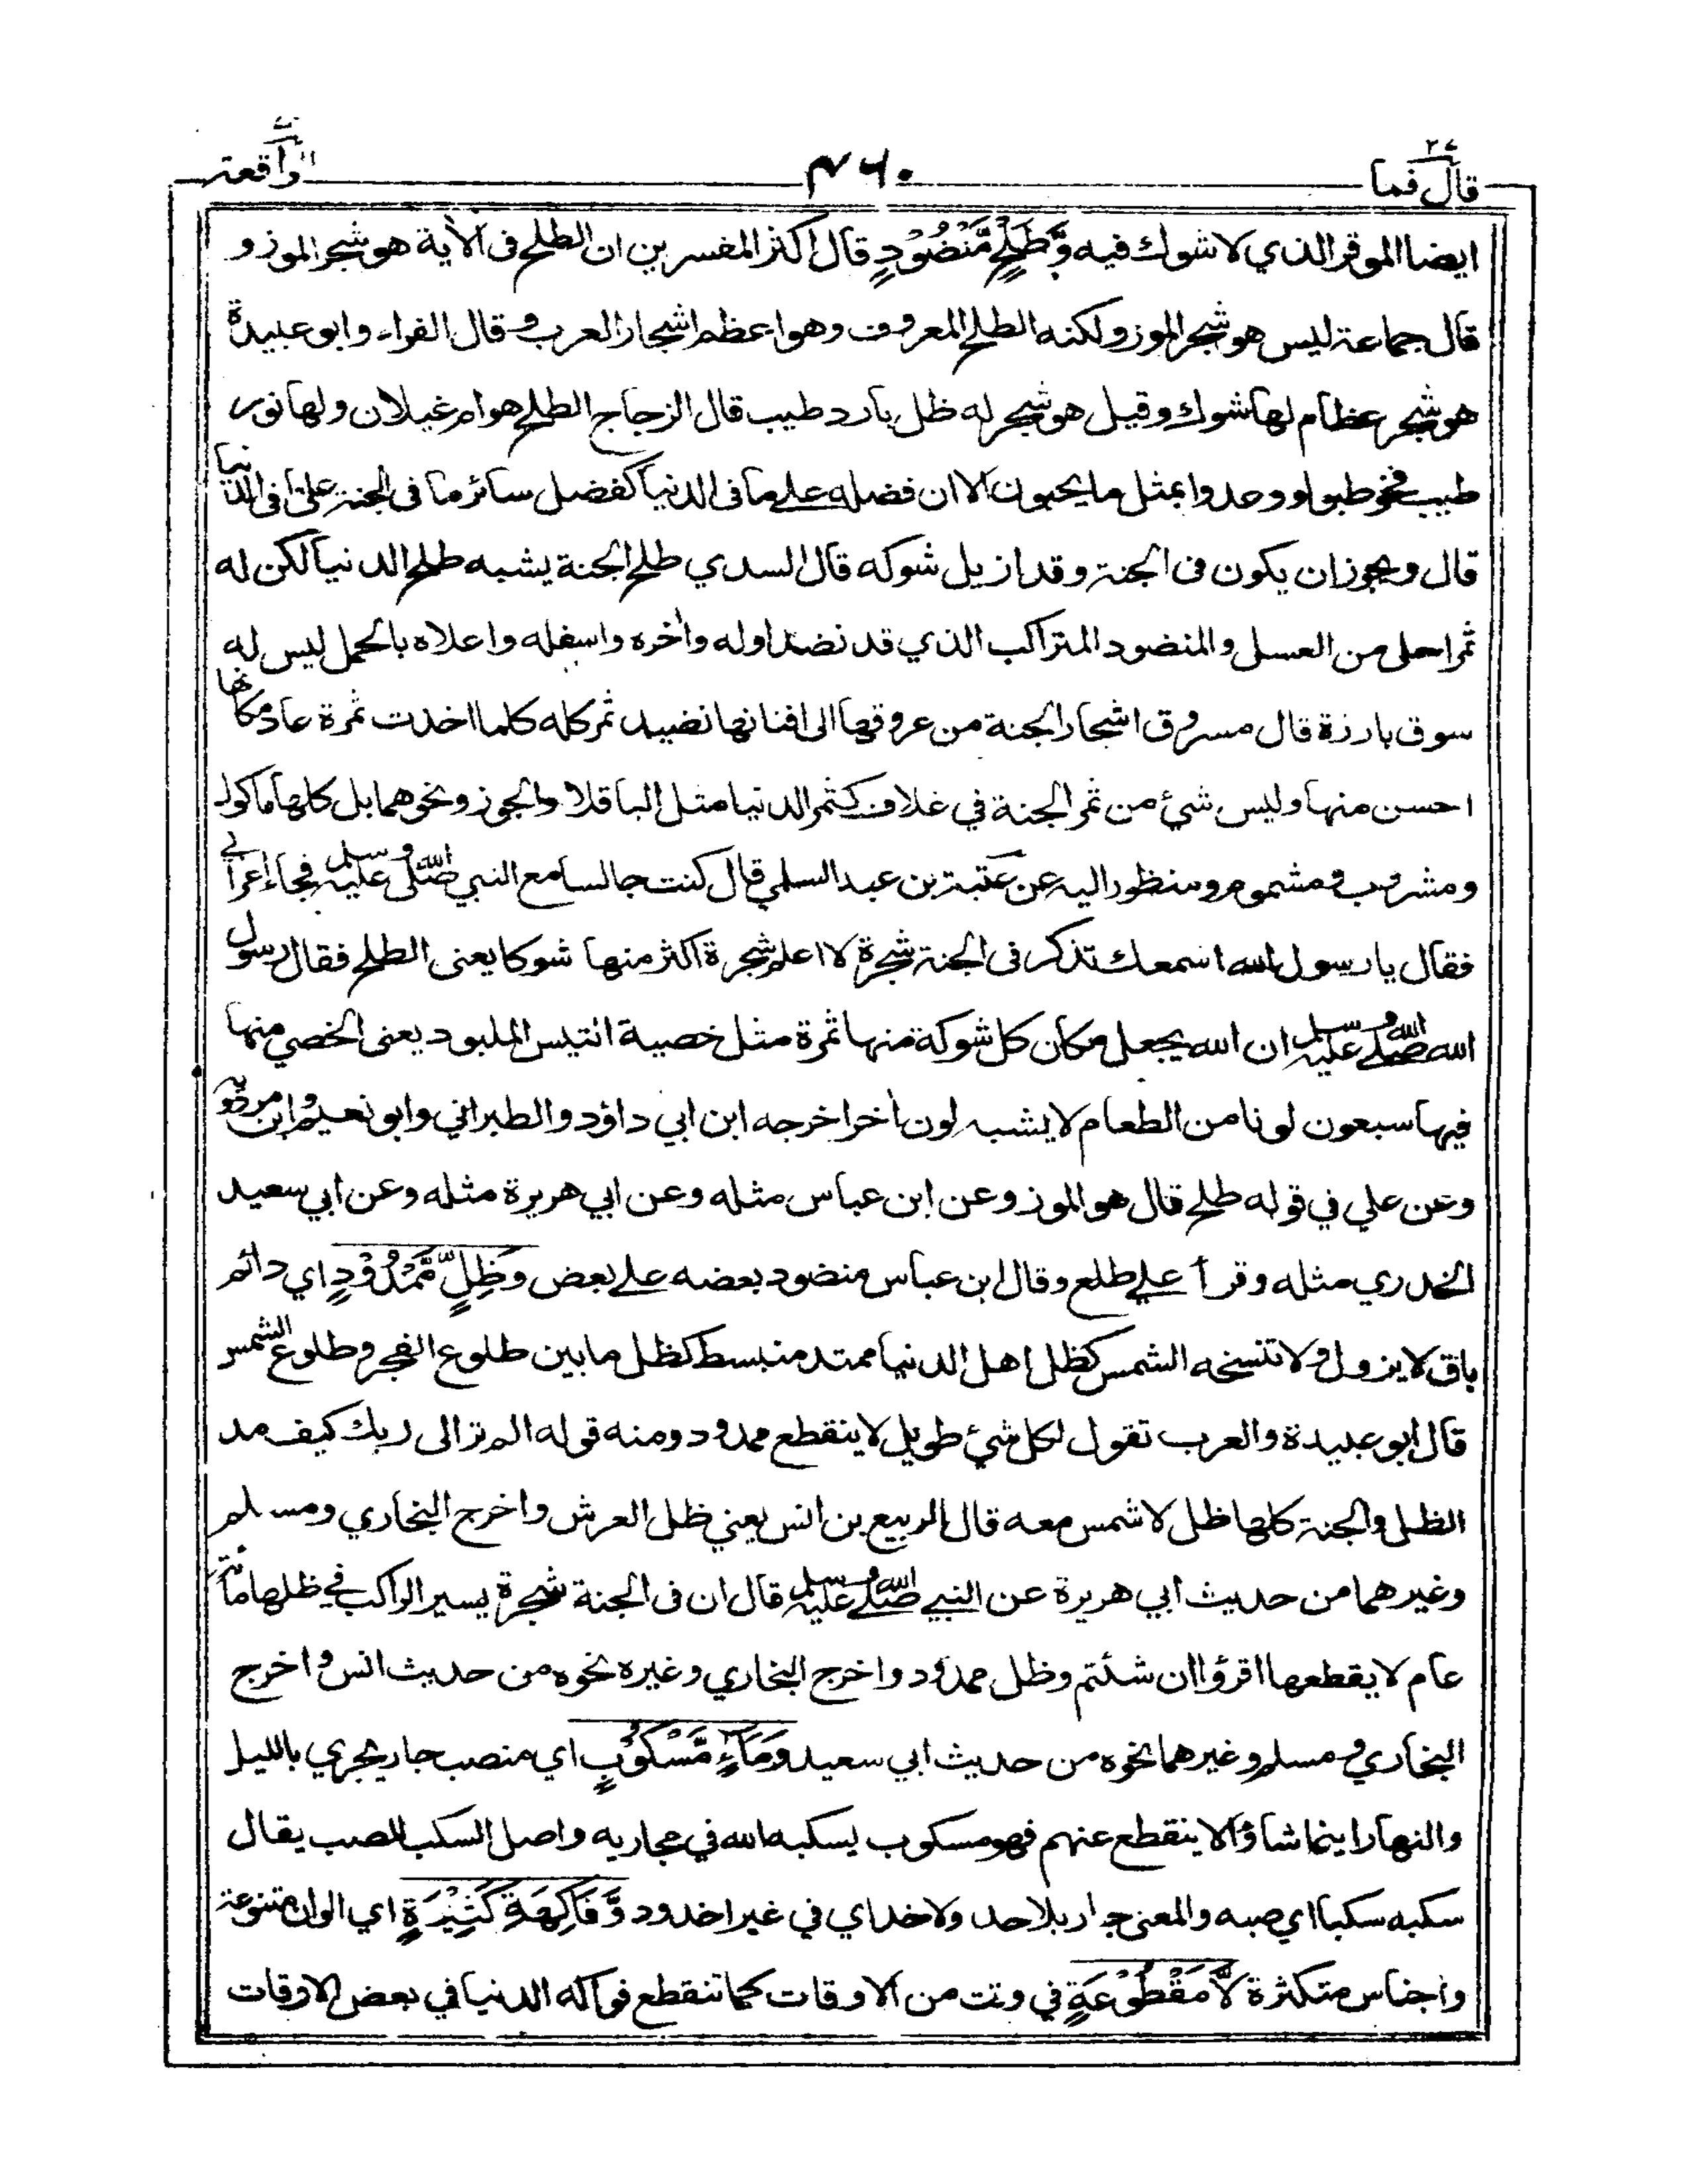 قال فما ٢٧
٤٦٠
الواقعة
ايضا الموقر الذي لا شوك فيه وَّطَلْحٍ مَّنْضُوْدٍ قال اكثر المفسرين ان الطلح فى الأية هو شجر الموز و
قال جماعة ليس هو شجر الموز ولكنه الطلح المعروف وهو اعظم اشجار العرب وقال الفراء وابو عبيدة
هو شجر عظام لها شوك وقيل هو شجر له ظل بارد طيب قال الزجاج الطلح هو ام غيلان ولها نور
طيب فخوطبوا ووعدوا بمثل ما يحبون الا ان فضله على ما فى الدنيا كفضل سائر ما فى الجنة على ما فى الدنيا
قال ويجوز ان يكون فى الجنة وقد ازيل شوكه قال السدي طلح الجنة يشبه طلح الدنيا لكن له
ثمر احلى من العسل والمنضود المتراكب الذي قد نضد اوله وأخره واسفله واعلاه بالحمل ليس له
سوق بارزة قال مسروق اشجار الجنة من عروقها الى افنانها نضيد ثمر كله كلما اخذت ثمرة عاد مكانها
احسن منها وليس شئ من ثمر الجنة في غلاف كثمر الدنيا مثل الباقلا والجوز ونحوهما بل كلها ماكول
ومشروب ومشموم ومنظور اليه عن عتبة بن عبد السلمي قال كنت جالسا مع النبي صلى الله عليه وسلم فجاء اعرابي
فقال يا رسول الله اسمعك تذكر فى الجنة شجرة لا اعلم شجرة اكثر منها شوكا يعنى الطلح فقال رسول
الله صلى الله عليه وسلم ان الله يجعل مكان كل شوكة منها ثمرة مثل خصية التيس الملبود يعنى الخصي منها
فيها سبعون لونا من الطعام لا يشبه لون أخر اخرجه ابن ابي داؤد والطبراني وابو نعيم وابن مردويه
وعن علي في قوله طلح قال هو الموز وعن ابن عباس مثله وعن ابي هريرة مثله وعن ابي سعيد
الخدري مثله وقرأ علي طلع وقال ابن عباس منضود بعضه على بعض وَظِلٍّ مَّمْدُوْدٍ اي دائم
باق لا يزول ولا تنسخه الشمس كظل اهل الدنيا ممتد منبسط كظل ما بين طلوع الفجر وطلوع الشمس
قال ابو عبيدة والعرب تقول لكل شئ طويل لا ينقطع ممدود ومنه قوله الم تر الى ربك كيف مد
الظل والجنة كلها ظل لا شمس معه قال الربيع بن انس يعني ظل العرش واخرج البخاري ومسلم
وغيرهما من حديث ابي هريرة عن النبي صلى الله عليه وسلم قال ان فى الجنة شجرة يسير الراكب في ظلها مائة
عام لا يقطعها اقرؤا ان شئتم وظل ممدود واخرج البخاري وغيره نحوه من حديث انس واخرج
البخاري ومسلم وغيرهما نحوه من حديث ابي سعيد وَمَاءٍ مَّسْكُوْبٍ اي منصب جار يجري بالليل
والنهار اينما شاؤا لا ينقطع عنهم فهو مسكوب يسكبه الله في مجاريه واصل السكب الصب يقال
سكبه سكبا اي صبه والمعنى جار بلا حد ولا خد اي في غير اخدود وَّفَاكِهَةٍ كَثِيْرَةٍ اي الوان متنوعة
واجناس متكثرة لَّا مَقْطُوْعَةٍ في وقت من الاوقات كما تنقطع فواكه الدنيا في بعض الاوقات